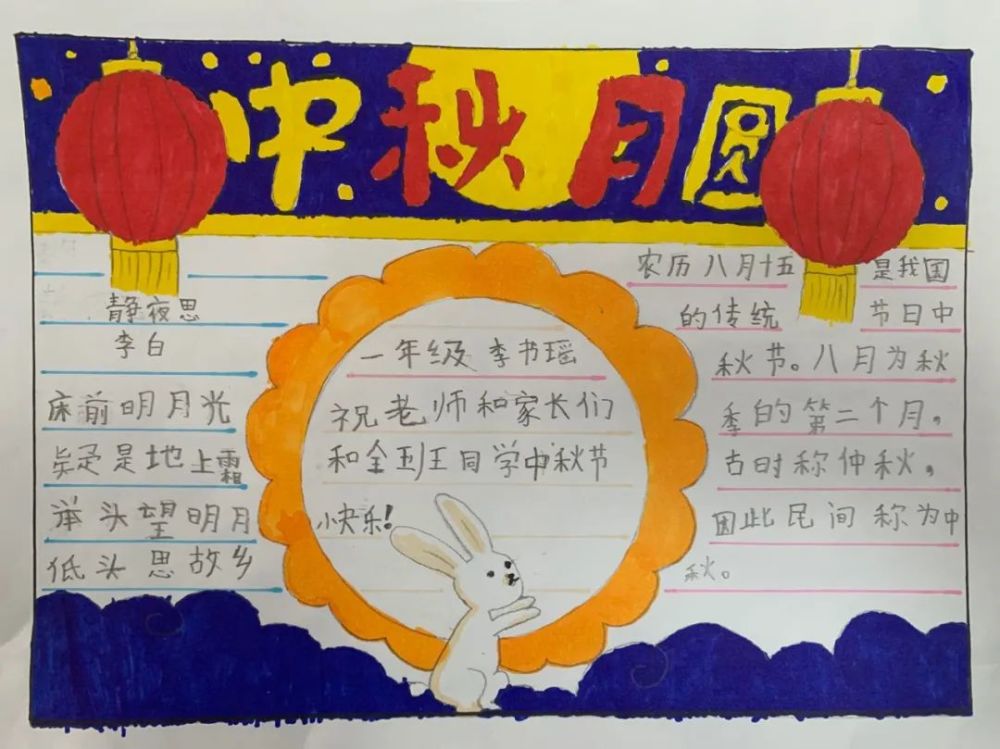 中秋月圆
静夜思
李白
床前明月光
疑是地上霜
举头望明月
低头思故乡
一年级 李书瑶
祝老师和家长们
和全班同学中秋节
快乐!
农历八月十五 是我国
的传统 节日中
秋节。八月为秋
季的第二个月,
古时称仲秋,
因此民间称为中
秋。